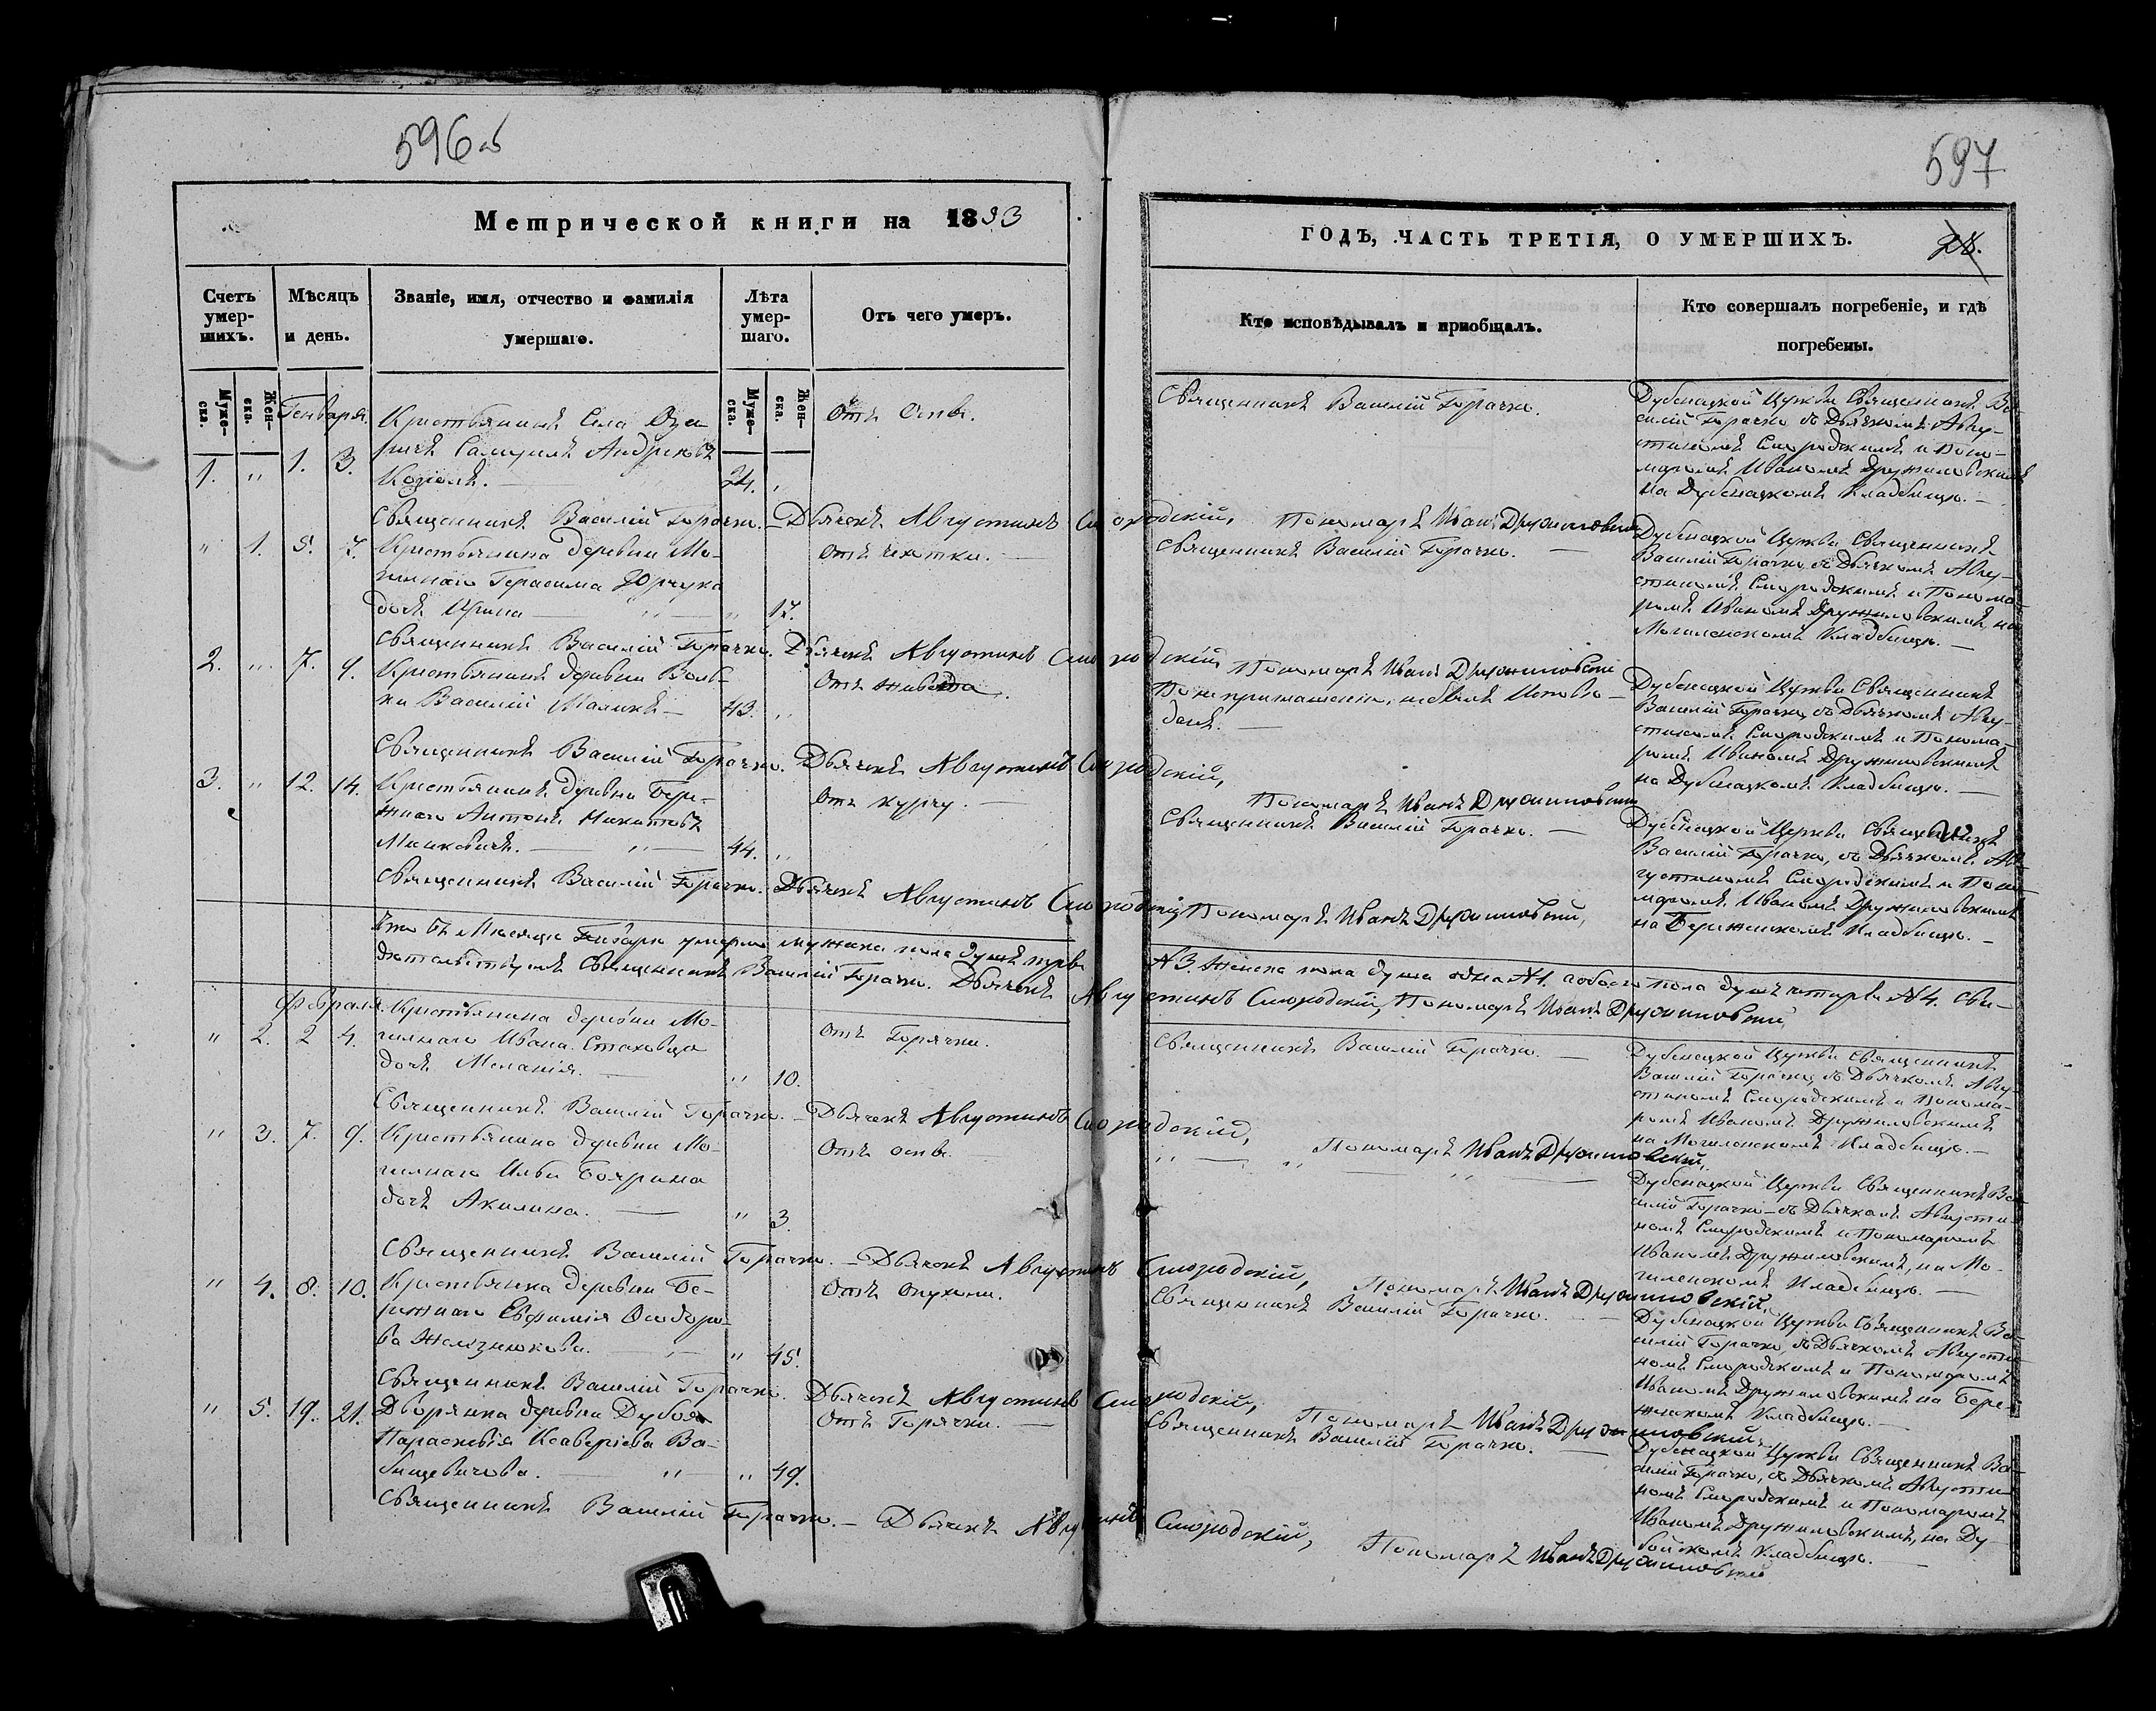 596об
597
Метрической книги на 1893
ГОДЪ, ЧАСТЬ ТРЕТІЯ, О УМЕРШИХЪ.
28.
Счетъ умер-
шихъ.
Мѣсяцъ
и день.
Званіе, имя, отчество и фамилія
умершаго.
Лѣта
умер-
шаго.
Отъ чего умеръ.
Кто исповѣдывалъ и приобщалъ.
Кто совершалъ погребеніе, и гдѣ
погребены.
Муже-
ска.
Жен-
ска.
Муже-
ска.
Жен-
ска.
Генваря.
1. " 1. 3.
Крестьянинъ Села Озе
ричъ Самуилъ Андреевъ
Козіолъ.
24. "
Отъ оспы.
Священникъ Василій Горачко.
Дубенецкой Церкви Священникъ Ва
силій Горачко съ Дьячкомъ Авгу-
стиномъ Смородскимъ и Поно-
маромъ Иваномъ Дружиловскимъ
на Дубенецкомъ Кладбищѣ.
Священникъ Василій Горачко. Дьячекъ Августинъ Смородскій, Пономаръ Иванъ Дружиловскій
" 1. 5. 7.
Крестьянина деревни Мо-
гилнаго Герасима Юрчука
дочь Ирина
" 17.
Отъ чахотки.
Священникъ Василій Горачко.
Дубенецкой Церкви Священникъ
Василій Горачко, съ Дьячкомъ Авгу-
стиномъ Смородскимъ и Понома-
ромъ Иваномъ Дружиловскимъ, на
Могиленскомъ Кладбищѣ.
Священникъ Василій Горачко. Дьячекъ Августинъ Смородскій Пономаръ Иванъ Дружиловскій
2. " 7. 9.
Крестьянинъ деревни Вольки
Василій Маликъ
43. "
Отъ живота.
По неприглашенію, не былъ Исповѣ-
данъ.
Дубенецкой Церкви Священникъ
Василій Горачко, съ Дьячкомъ Авгу-
стиномъ Смородскимъ и Понома-
ромъ Иваномъ Дружиловскимъ
на Дубенецкомъ Кладбищѣ.
Священникъ Василій Горачко. Дьячекъ Августинъ Смородскій,
Пономаръ Иванъ Дружиловскій
3. " 12. 14.
Крестьянинъ деревни Бере-
жнаго Антонъ Никитовъ
Минковичъ.
44. "
Отъ курчу.
Священникъ Василій Горачко.
Дубенецкой Церкви Священникъ
Василій Горачко, съ Дьячкомъ Ав-
густиномъ Смородскимъ и Поно-
маромъ Иваномъ Дружиловскимъ
на Бережнскомъ Кладбищѣ.
Священникъ Василій Горачко. Дьячекъ Августинъ Смородскій Пономаръ Иванъ Дружиловскій,
Что въ Мѣсяцѣ Генварѣ умерло мужеска пола душъ три №3. Женска пола душа одна №1. а обоего пола душъ четыре №4. Сви-
дѣтельствуемъ Священникъ Василій Горачко. Дьячекъ Августинъ Смородскій, Пономаръ Иванъ Дружиловскій
Февраля.
" 2. 2 4.
Крестьянина деревни Мо-
гилнаго Ивана Стаховца
дочь Меланія.
" 10.
Отъ Горячки.
Священникъ Василій Горачко.
Дубенецкой Церкви Священникъ
Василій Горачко, съ Дьячкомъ Авгу-
стиномъ Смородскимъ и Понома-
ромъ Иваномъ Дружиловскимъ
на Могиленскомъ Кладбищѣ.
Священникъ Василій Горачко. Дьячекъ Августинъ Смородскій,
Пономаръ Иванъ Дружиловскій,
" 3. 7. 9.
Крестьянина деревни Мо-
гилнаго Ильи Боярина
дочь Акилина.
" 3.
Отъ оспы.
" " "
Дубенецкой Церкви Священникъ Ва
силій Горачко съ Дьячкомъ Августи-
номъ Смородскимъ и Пономаромъ
Иваномъ Дружиловскимъ, на Мо-
гиленскомъ Кладбищѣ.
Священникъ Василій Горачко. Дьячекъ Августинъ Смородскій,
Пономаръ Иванъ Дружиловскій,
" 4. 8. 10.
Крестьянка деревни Бе-
режнаго Евфимія Ѳеодоро-
ва Железнюкова.
" 45.
Отъ опухоли.
Священникъ Василій Горачко.
Дубенецкой Церкви Священникъ Ва-
силій Горачко, съ Дьячкомъ Августи
номъ Смородскимъ и Пономаромъ
Иваномъ Дружиловскимъ на Бере-
жнскомъ Кладбищѣ.
Священникъ Василій Горачко. Дьячекъ Августинъ Смородскій,
Пономаръ Иванъ Дружиловскій
" 5. 19. 21.
Дворянка деревни Дубоя
Параскевія Ксаверіева Ва-
бищевичова.
" 49.
Отъ Горячки.
Священникъ Василій Горачко.
Дубенецкой Церкви Священникъ Ва-
силій Горачко, съ Дьячкомъ Августи-
номъ Смородскимъ и Пономаромъ
Иваномъ Дружиловскимъ, на Ду-
бойскомъ Кладбищѣ.
Священникъ Василій Горачко. Дьячекъ Августинъ Смородскій,
Пономаръ Иванъ Дружиловскій